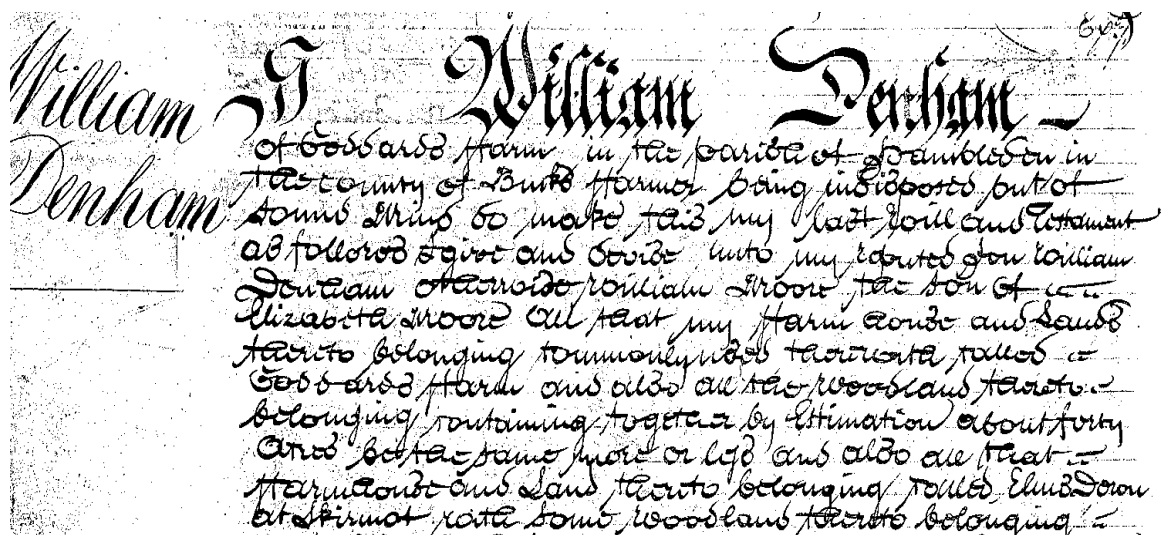 William
Denham
I William Denham
of Goddards Farm in the parish of Hambleden in
the county of Bucks Farmer being indisposed but of
sound Mind do make this my last will and Testament
as follows I give and devise unto my reputed Son William
Denham otherwise William Moore the son of
Elizabeth Moore All that my Farm house and Lands
thereto belonging commonly used therewith called
Goddards Farm and also all the woodland thereto
belonging containing together by Estimation about forty
Acres be the same more or less and also all that
Farmhouse and Land thereto belonging called Down
at Skirmot with some woodland thereto belonging